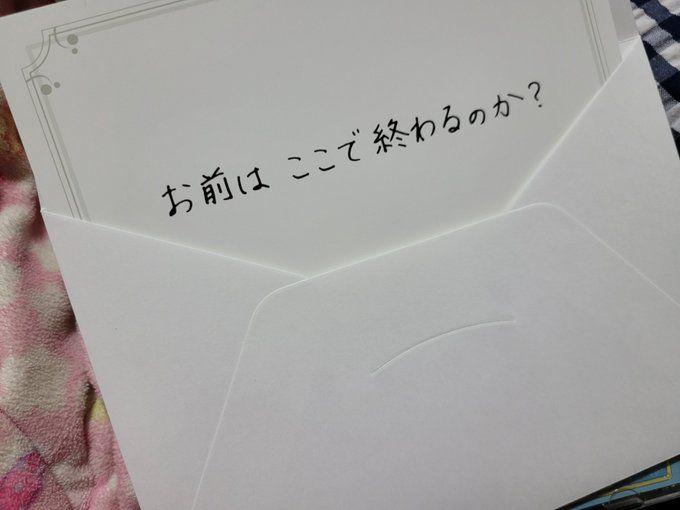 お前は ここで終わるのか?